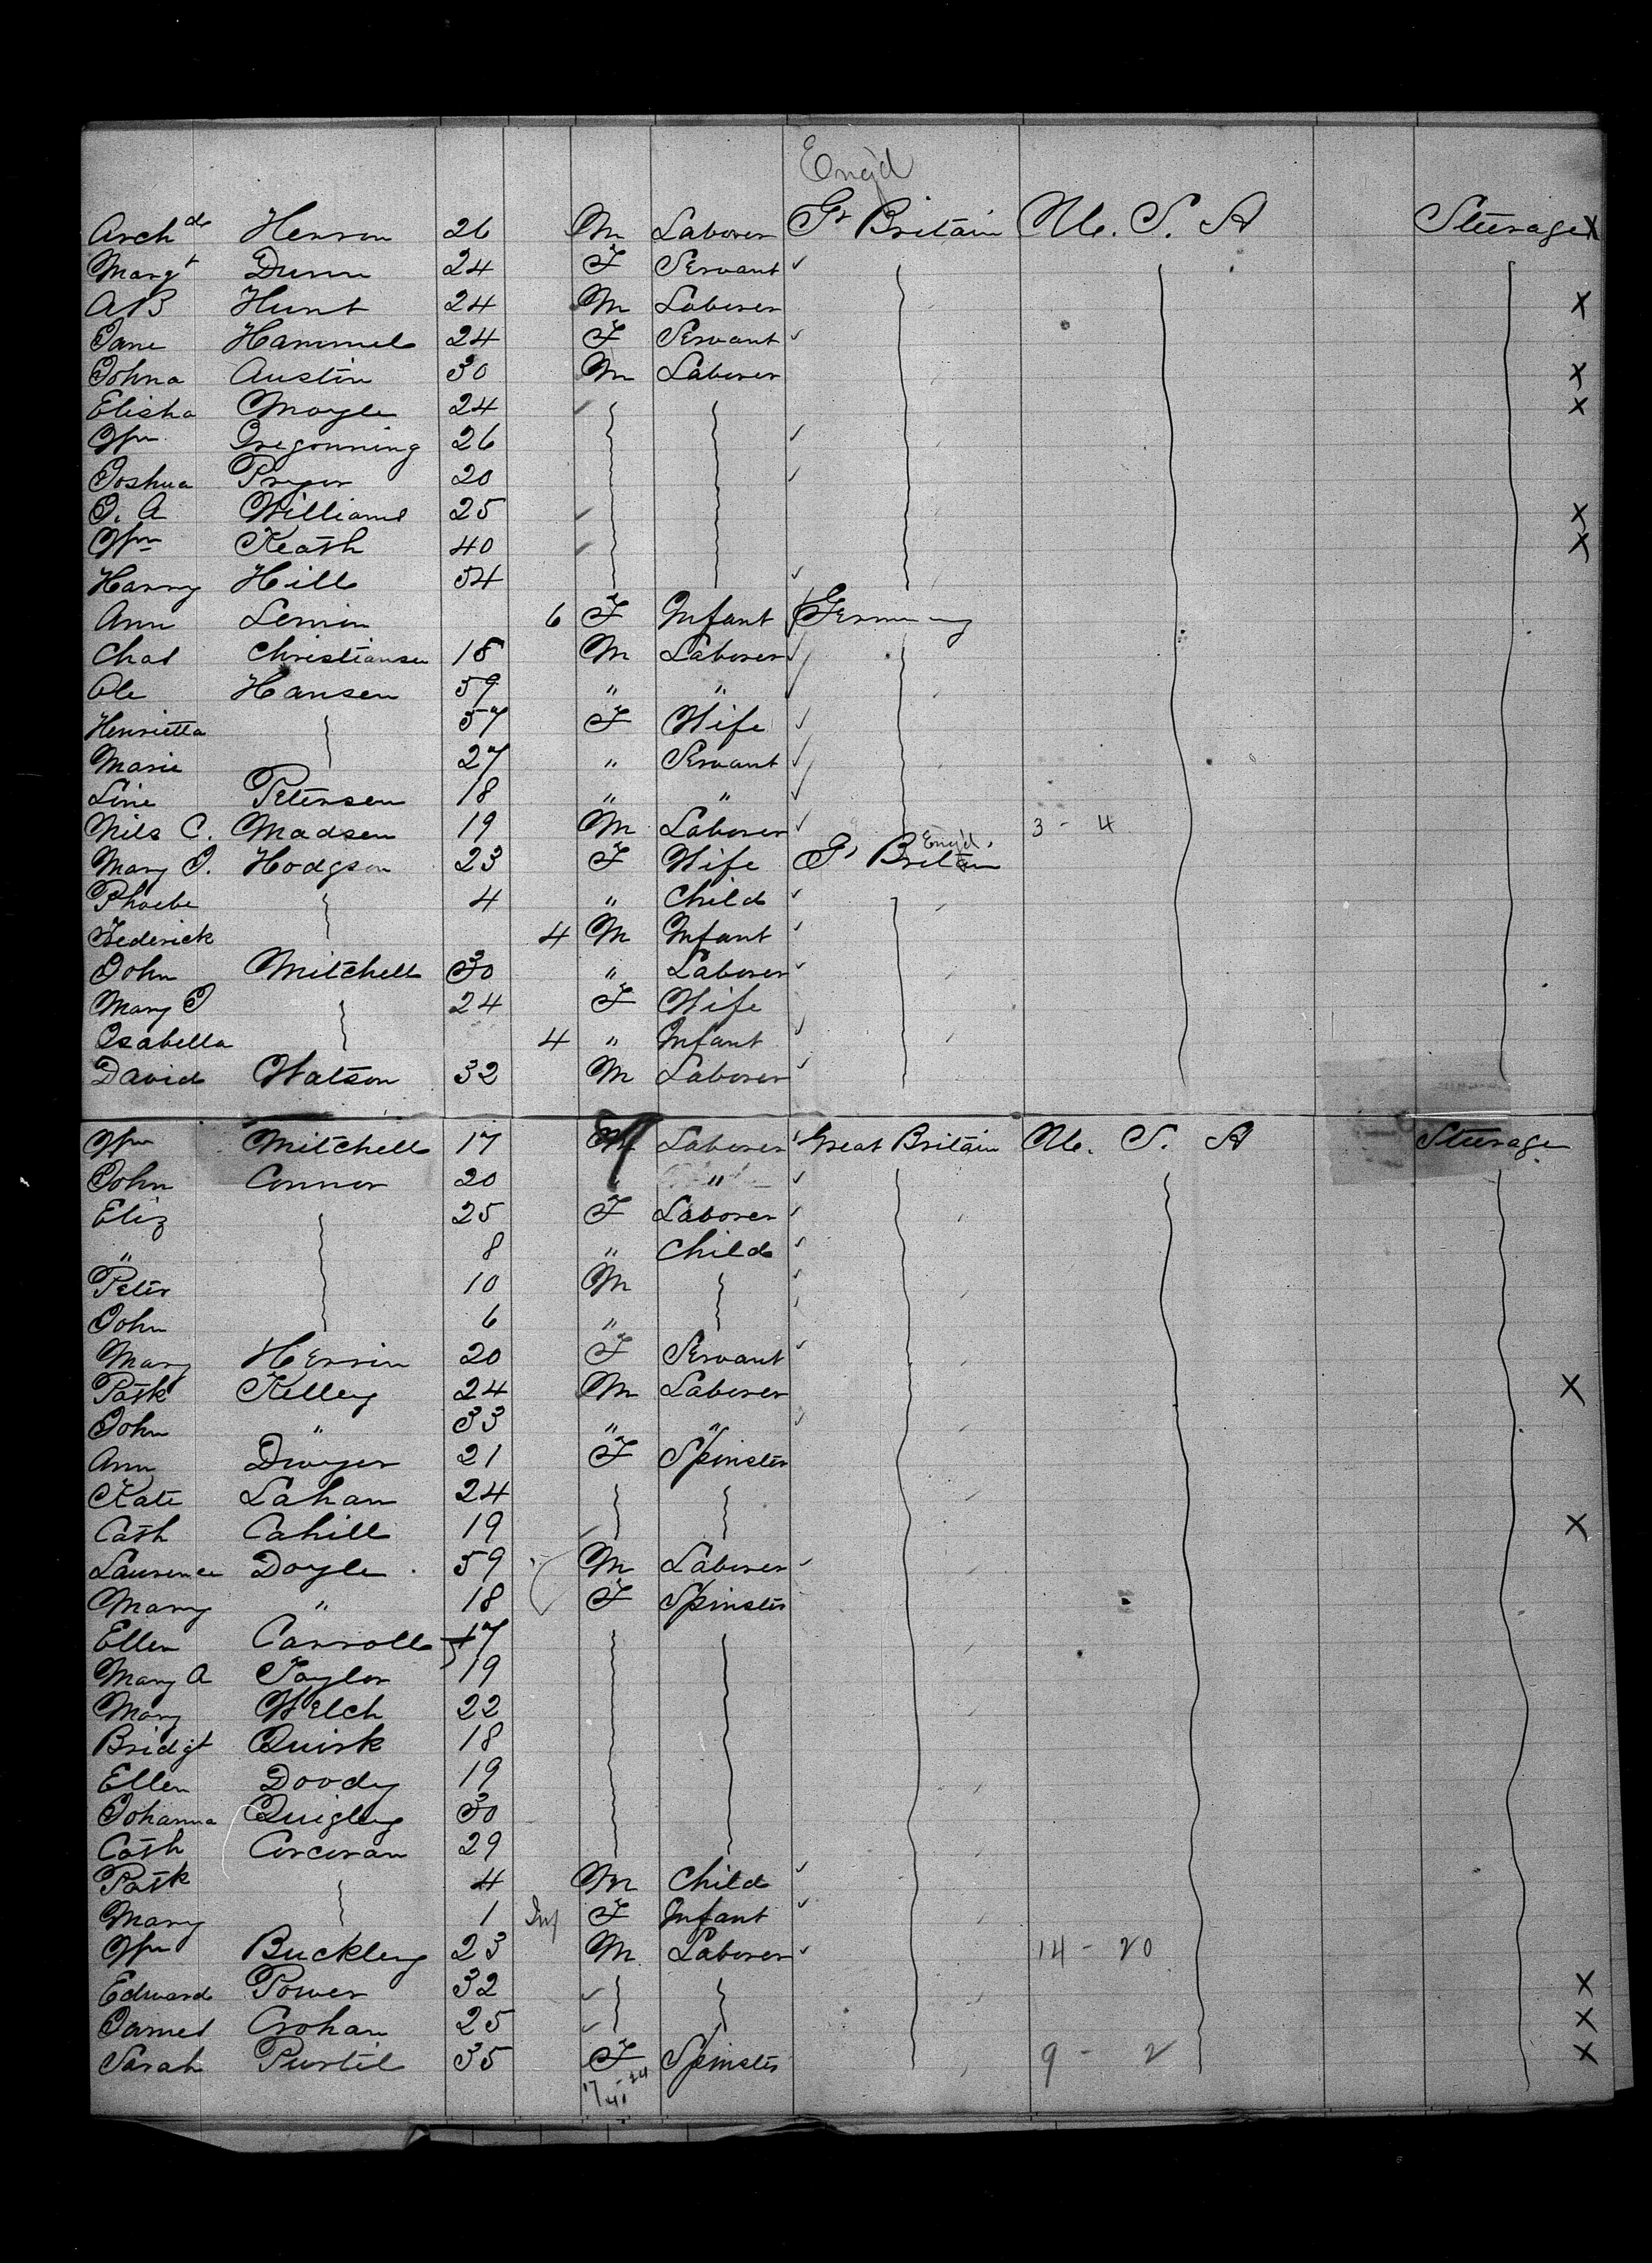 Eng'd
Archde Herron 26 M Laborer Gt Britain U. S. A Steerage X
Margt Dunn 24 F Servant ✓
A B Hunt 24 M Laborer X
Jane Hammel 24 F Servant ✓
John a Austin 30 M Laborer X
Elisha Moyle 24 X
Wm Tregonning 26 ✓
Joshua Pryor 20 ✓
J. A Williams 25 X
Wm Keath 40 X
Harry Hill 54 ✓
Ann Lemin 6 F Infant Germany
Chas Christiansen 18 M Laborer ✓
Ole Hansen 59 " " ✓
Henrietta 57 F Wife ✓
Marie 27 " Servant ✓
Line Petersen 18 " " ✓
Nils C. Madsen 19 M Laborer ✓ 3 - 4
Eng'd.
Mary J. Hodgson 23 F Wife Gt Britain
Phoebe 4 " Child ✓
Frederick 4 M Infant ✓
John Mitchell 30 " Laborer ✓
Mary J 24 F Wife
Isabella 4 " Infant ✓
David Watson 32 M Laborer ✓
Wm Mitchell 17 M Laborer Great Britain U. S. A Steerage
John Connor 20 " ✓
Eliz 25 F Laborer ✓
" 8 " Child ✓
Peter 10 M ✓
John 6 " ✓
Mary Herrin 20 F Servant ✓
Patk Kelley 24 M Laborer X
John " 33 " " ✓
Ann Dwyer 21 F Spinster
Kate Lahan 24
Cath Cahill 19 X
Laurence Doyle 59 M Laborer ✓
Mary " 18 F Spinster
Ellen Carroll 17
Mary A Taylor 19
Mary Welch 22
Bridgt Quirk 18
Ellen Doody 19
Johanna Quigley 30
Cath Corcoran 29
Patk 4 M Child ✓
Mary 1 Inf F Infant ✓
Wm Buckley 23 M Laborer ✓ 14 - 20
Edward Power 32 X
James Crohan 25 X
Sarah Purtil 35 F Spinster 9 - 2 X